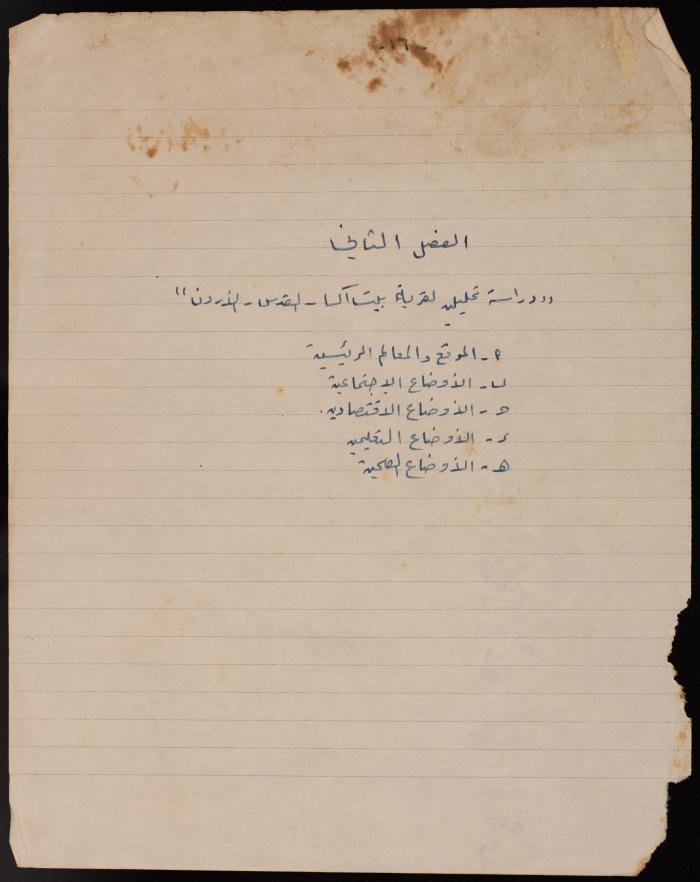 -١٦-
الفصل الثاني
"دراسة تحليلية لقرية بيت اكسا - القدس - الأردن"
٩ - الموقع والمعالم الرئيسية
ب - الأوضاع الاجتماعية
ج - الأوضاع الاقتصادية.
د - الأوضاع التعليمية
هـ - الأوضاع الصحية